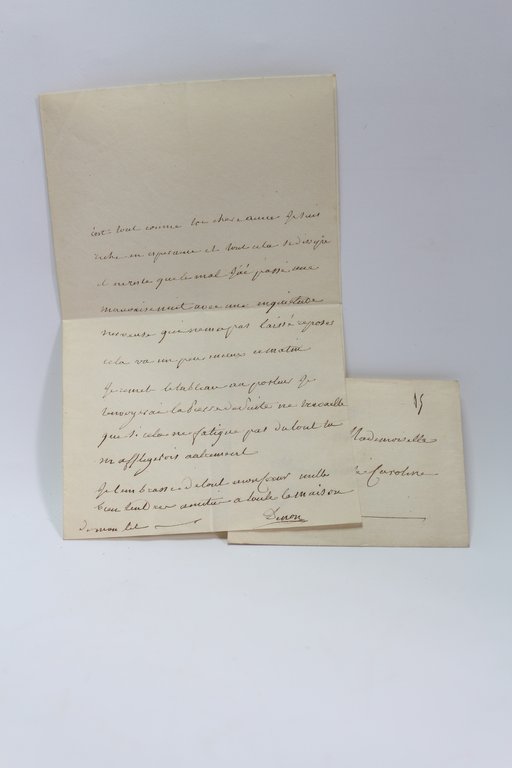 c'est tout comme toi chere amie Je suis
riche en esperance et tout cela se dissipe
il ne reste que le mal J'ai passé une
mauvaise nuit avec une inquiétude
nerveuse que ne m'a pas laissé reposer
cela va un peu mieux ce matin
Je remet le tableau au porteur Je
renvoyrai la Piesse de suite ne travaille
que si cela ne fatigue pas du tout tu
m'affligerois autrement
Je t'embrasse de tout mon coeur mille
bien tendres amitiés a toute la maison
De mon lit
Denon
15
Mademoiselle
Caroline